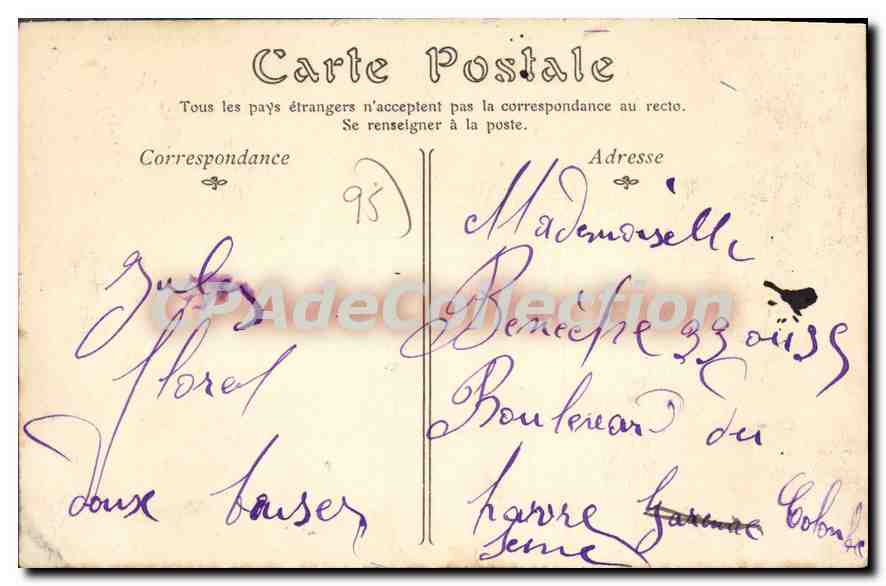 Carte Postale
Tous les pays étrangers n'acceptent pas la correspondance au recto.
Se renseigner à la poste.
Correspondance
Adresse
95
Mademoiselle
Jules
CPAdeCollection
Benèche 33 ou 35
Florel
Boulevard du
doux baiser
havre Garenne Colombe
Seine